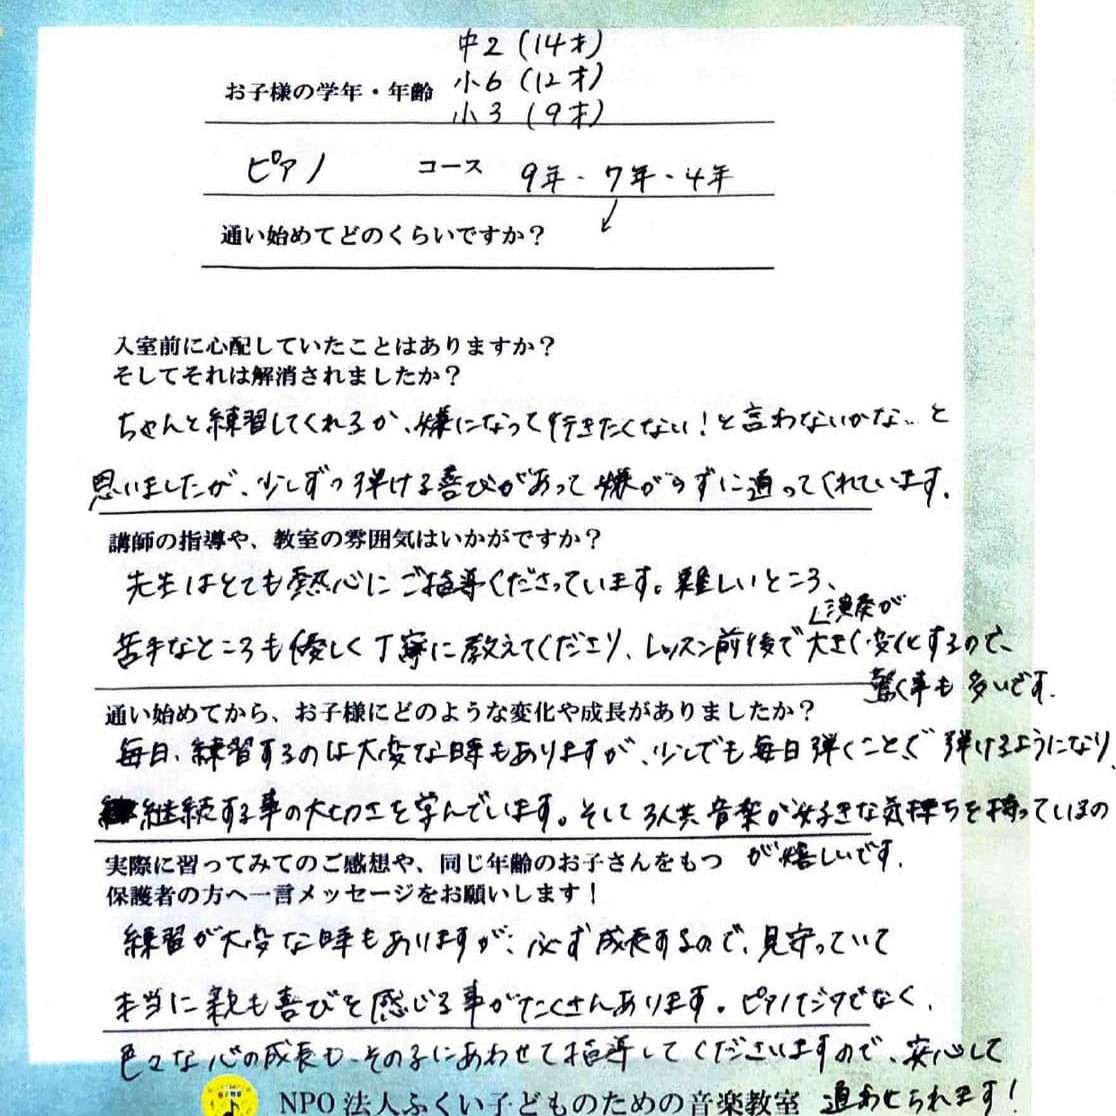 中2 (14才)
お子様の学年・年齢 小6 (12才)
小3 (9才)
ピアノ コース 9年・7年・4年
通い始めてどのくらいですか?
入室前に心配していたことはありますか?
そしてそれは解消されましたか?
ちゃんと練習してくれるか、嫌になって行きたくない!と言わないかな‥と
思いましたが、少しずつ弾ける喜びがあって嫌がらずに通ってくれています。
講師の指導や、教室の雰囲気はいかがですか?
先生はとても熱心にご指導くださっています。難しいところ、
苦手なところも優しく丁寧に教えてくださり、レッスン前後で演奏が大きく変化するので、
驚く事も多いです。
通い始めてから、お子様にどのような変化や成長がありましたか?
毎日、練習するのは大変な時もありますが、少しでも毎日弾くことで弾けるようになり、
継続する事の大切さを学んでいます。そして3人共音楽が好きな気持ちを持っているの
が嬉しいです。
実際に習ってみてのご感想や、同じ年齢のお子さんをもつ
保護者の方へ一言メッセージをお願いします!
練習が大変な時もありますが、必ず成長するので、見守っていて
本当に親も喜びを感じる事がたくさんあります。ピアノだけでなく、
色々な心の成長も、その子にあわせて指導してくださいますので、安心して
通わせられます!
NPO法人ふくい子どものための音楽教室